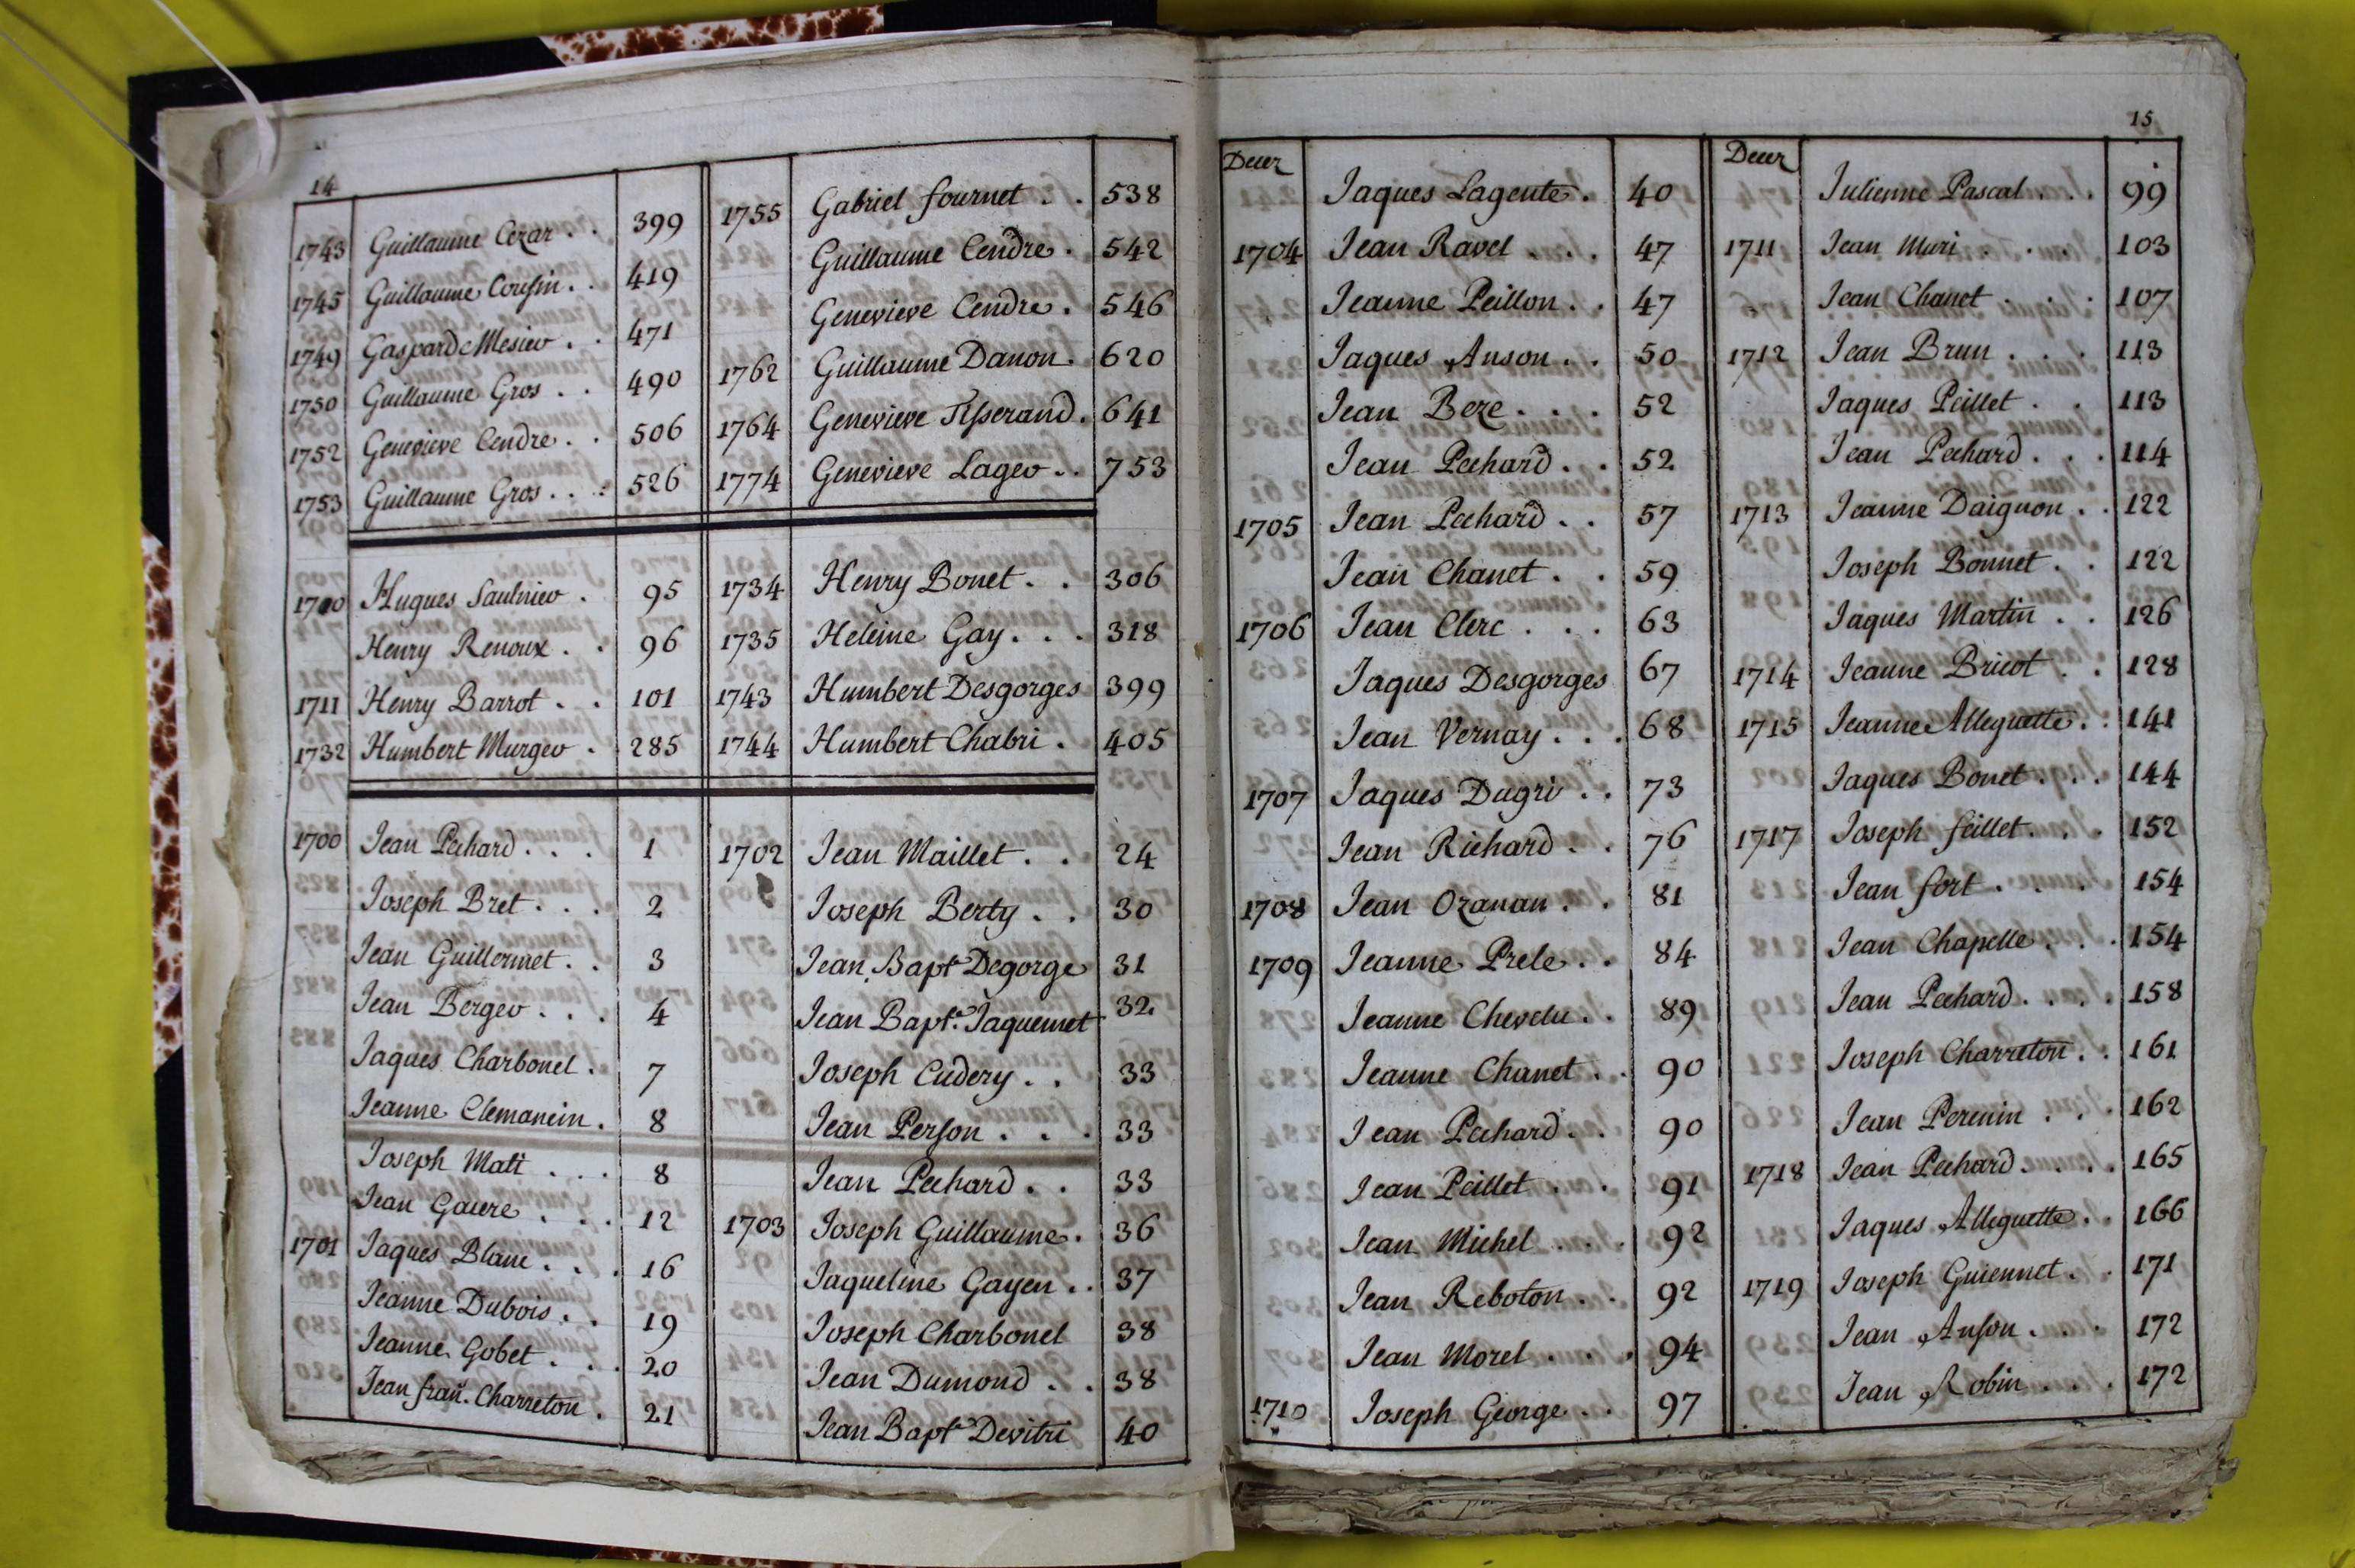 14
1743 Guillaume Cezar . . 399
1745 Guillaume Cousin . . 419
1749 Gaspard Mesier . . 471
1750 Guillaume Gros . . 490
1752 Genevieve Cendre . . 506
1753 Guillaume Gros . . . 526
1710 Hugues Saulnier . 95
Henry Renoux . . 96
1711 Henry Barrot . . 101
1732 Humbert Murger . 285
1700 Jean Pechard . . . 1
Joseph Bret . . . 2
Jean Guillermet . . 3
Jean Berger . . . 4
Jaques Charbonel . 7
Jeanne Clemancin . 8
Joseph Mati . . . 8
Jean Gacere . . . 12
1701 Jaques Blanc . . . 16
Jeanne Dubois . . 19
Jeanne Gobet . . . 20
Jean fran. Charreton . 21
1755 Gabriel fournet . . 538
Guillaume Cendre . 542
Genevieve Cendre . 546
1762 Guillaume Danon . 620
1764 Genevieve Tisserand . 641
1774 Genevieve Lager . . 753
1734 Henry Bonet . . 306
1735 Heleine Gay . . . 318
1743 Humbert Desgorges 399
1744 Humbert Chabri . 405
1702 Jean Maillet . . 24
Joseph Berty . . 30
Jean Bapt.e Degorge 31
Jean Bapt.e Jaquemet 32
Joseph Cudery . . 33
Jean Person . . . 33
Jean Pechard . . 33
1703 Joseph Guillaume . 36
Jaqueline Gayen . . 37
Joseph Charbonel 38
Jean Dumond . . 38
Jean Bapt.e Devitri 40
15
Decez
Jaques Lagente . 40
1704 Jean Ravel . . . 47
Jeanne Peillon . . 47
Jaques Anson . . 50
Jean Beze . . . 52
Jean Pechard . . 52
1705 Jean Pechard . . 57
Jean Chanet . . 59
1706 Jean Clerc . . . 63
Jaques Desgorges 67
Jean Vernay . . . 68
1707 Jaques Dugri . . 73
Jean Richard . . 76
1708 Jean Ozanan . . 81
1709 Jeanne Prele . . 84
Jeanne Chevelu . . 89
Jeanne Chanet . . 90
Jean Pechard . . 90
Jean Peillet . . 91
Jean Michel . . . 92
Jean Reboton . . 92
Jean Morel . . . 94
1710 Joseph George . . 97
Decez
Julienne Pascal . . . 99
1711 Jean Muri . . . 103
Jean Chanet . . . 107
1712 Jean Brun . . . 113
Jaques Peillet . . 113
Jean Pechard . . . 114
1713 Jeanne Daignon . . 122
Joseph Bonnet . . 122
Jaques Martin . . 126
1714 Jeanne Bricot . . 128
1715 Jeanne Alleguette . . 141
Jaques Bonet . . . 144
1717 Joseph feillet . . . 152
Jean fort . . . 154
Jean Chapelle . . . 154
Jean Pechard . . . . 158
Joseph Charreton . . 161
Jean Perenin . . . 162
1718 Jean Pechard . . . . 165
Jaques Alleguette . . 166
1719 Joseph Guiennet . . 171
Jean Anson . . . 172
Jean Robin . . . 172